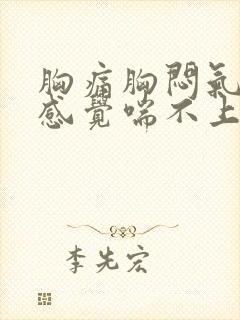 胸痛胸悶氣
感覺喘不上
李先宏